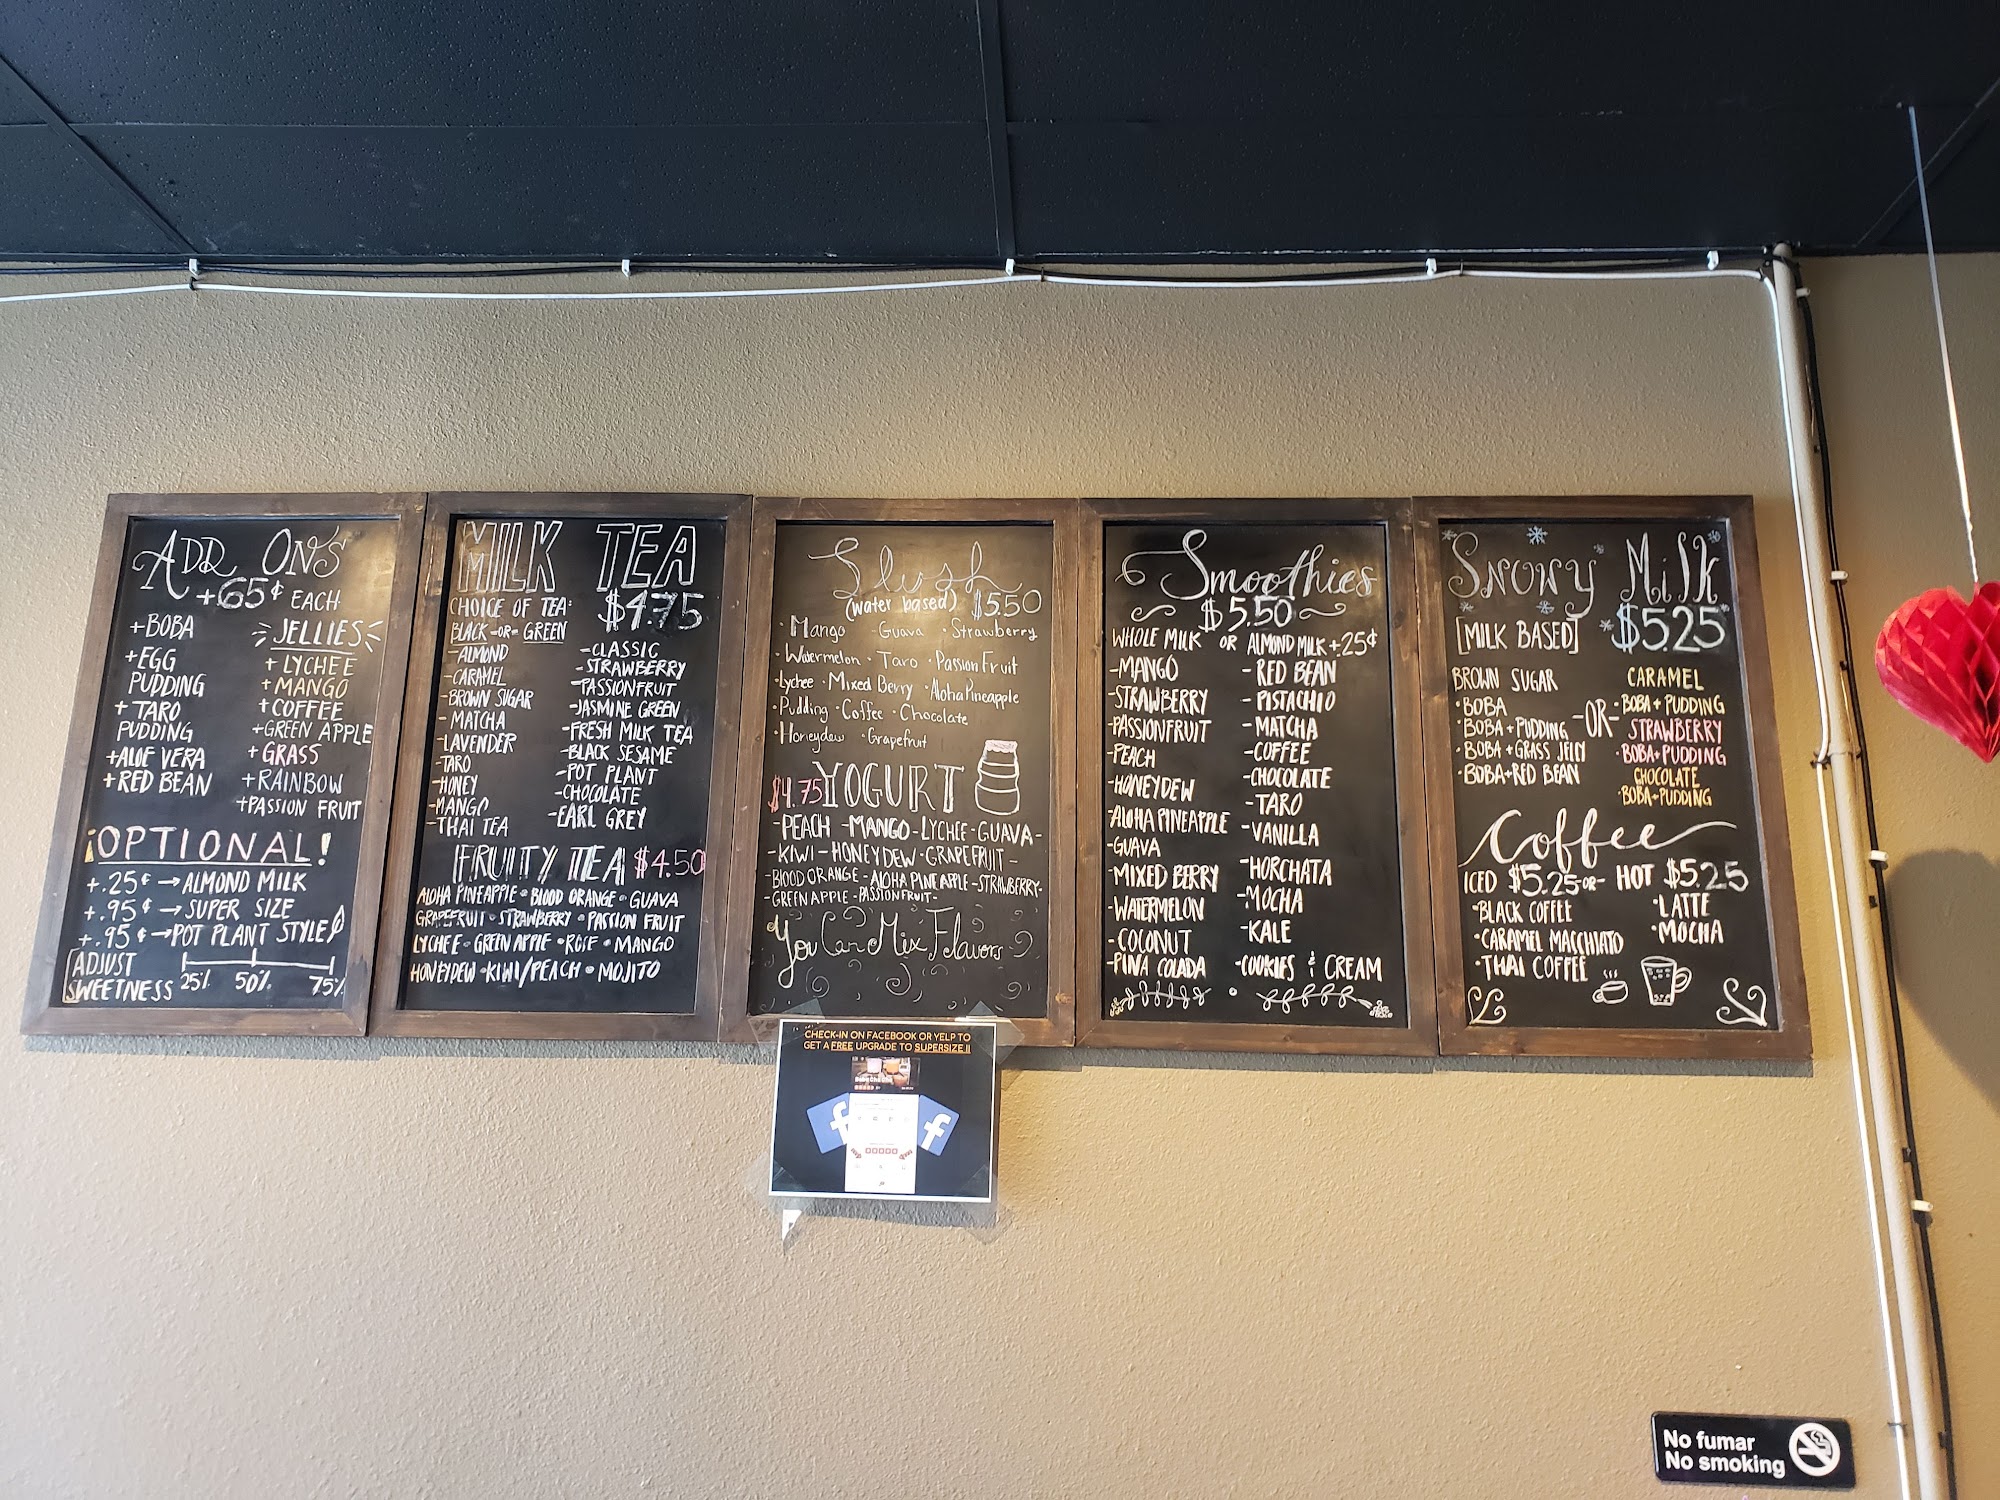 ADD ONS
+65¢ EACH
+BOBA
+EGG
PUDDING
+TARO
PUDDING
+ALOE VERA
+RED BEAN
JELLIES
+LYCHEE
+MANGO
+COFFEE
+GREEN APPLE
+GRASS
+RAINBOW
+PASSION FRUIT
¡OPTIONAL!
+.25¢ → ALMOND MILK
+.95¢ → SUPER SIZE
+.95¢ → POT PLANT STYLE
ADJUST
SWEETNESS 25% 50% 75%
MILK TEA
CHOICE OF TEA: $4.75
BLACK -OR- GREEN
-ALMOND
-CARAMEL
-BROWN SUGAR
-MATCHA
-LAVENDER
-TARO
-HONEY
-MANGO
-THAI TEA
-CLASSIC
-STRAWBERRY
-PASSIONFRUIT
-JASMINE GREEN
-FRESH MILK TEA
-BLACK SESAME
-POT PLANT
-CHOCOLATE
-EARL GREY
FRUITY TEA $4.50
ALOHA PINEAPPLE • BLOOD ORANGE • GUAVA
GRAPEFRUIT • STRAWBERRY • PASSION FRUIT
LYCHEE • GREEN APPLE • ROSE • MANGO
HONEYDEW • KIWI/PEACH • MOJITO
Slush
(water based) $5.50
• Mango - Guava • Strawberry
• Watermelon • Taro • Passion Fruit
• Lychee • Mixed Berry • Aloha Pineapple
• Pudding • Coffee • Chocolate
• Honeydew • Grapefruit
$4.75 YOGURT
-PEACH -MANGO -LYCHEE -GUAVA-
-KIWI- HONEYDEW -GRAPEFRUIT-
-BLOOD ORANGE - ALOHA PINEAPPLE -STRAWBERRY-
-GREEN APPLE -PASSIONFRUIT-
You Can Mix Flavors
Smoothies
$5.50
WHOLE MILK OR ALMOND MILK +25¢
-MANGO
-STRAWBERRY
-PASSIONFRUIT
-PEACH
-HONEYDEW
-ALOHA PINEAPPLE
-GUAVA
-MIXED BERRY
-WATERMELON
-COCONUT
-PIÑA COLADA
-RED BEAN
-PISTACHIO
-MATCHA
-COFFEE
-CHOCOLATE
-TARO
-VANILLA
-HORCHATA
-MOCHA
-KALE
-COOKIES & CREAM
SNOWY MILK
[MILK BASED] $5.25
BROWN SUGAR
• BOBA
• BOBA + PUDDING
• BOBA + GRASS JELLY
• BOBA + RED BEAN
-OR-
CARAMEL
• BOBA + PUDDING
STRAWBERRY
• BOBA + PUDDING
CHOCOLATE
• BOBA + PUDDING
Coffee
ICED $5.25 -OR- HOT $5.25
• BLACK COFFEE
• CARAMEL MACCHIATO
• THAI COFFEE
• LATTE
• MOCHA
CHECK-IN ON FACEBOOK OR YELP TO
GET A FREE UPGRADE TO SUPERSIZE !!
f
f
No fumar
No smoking